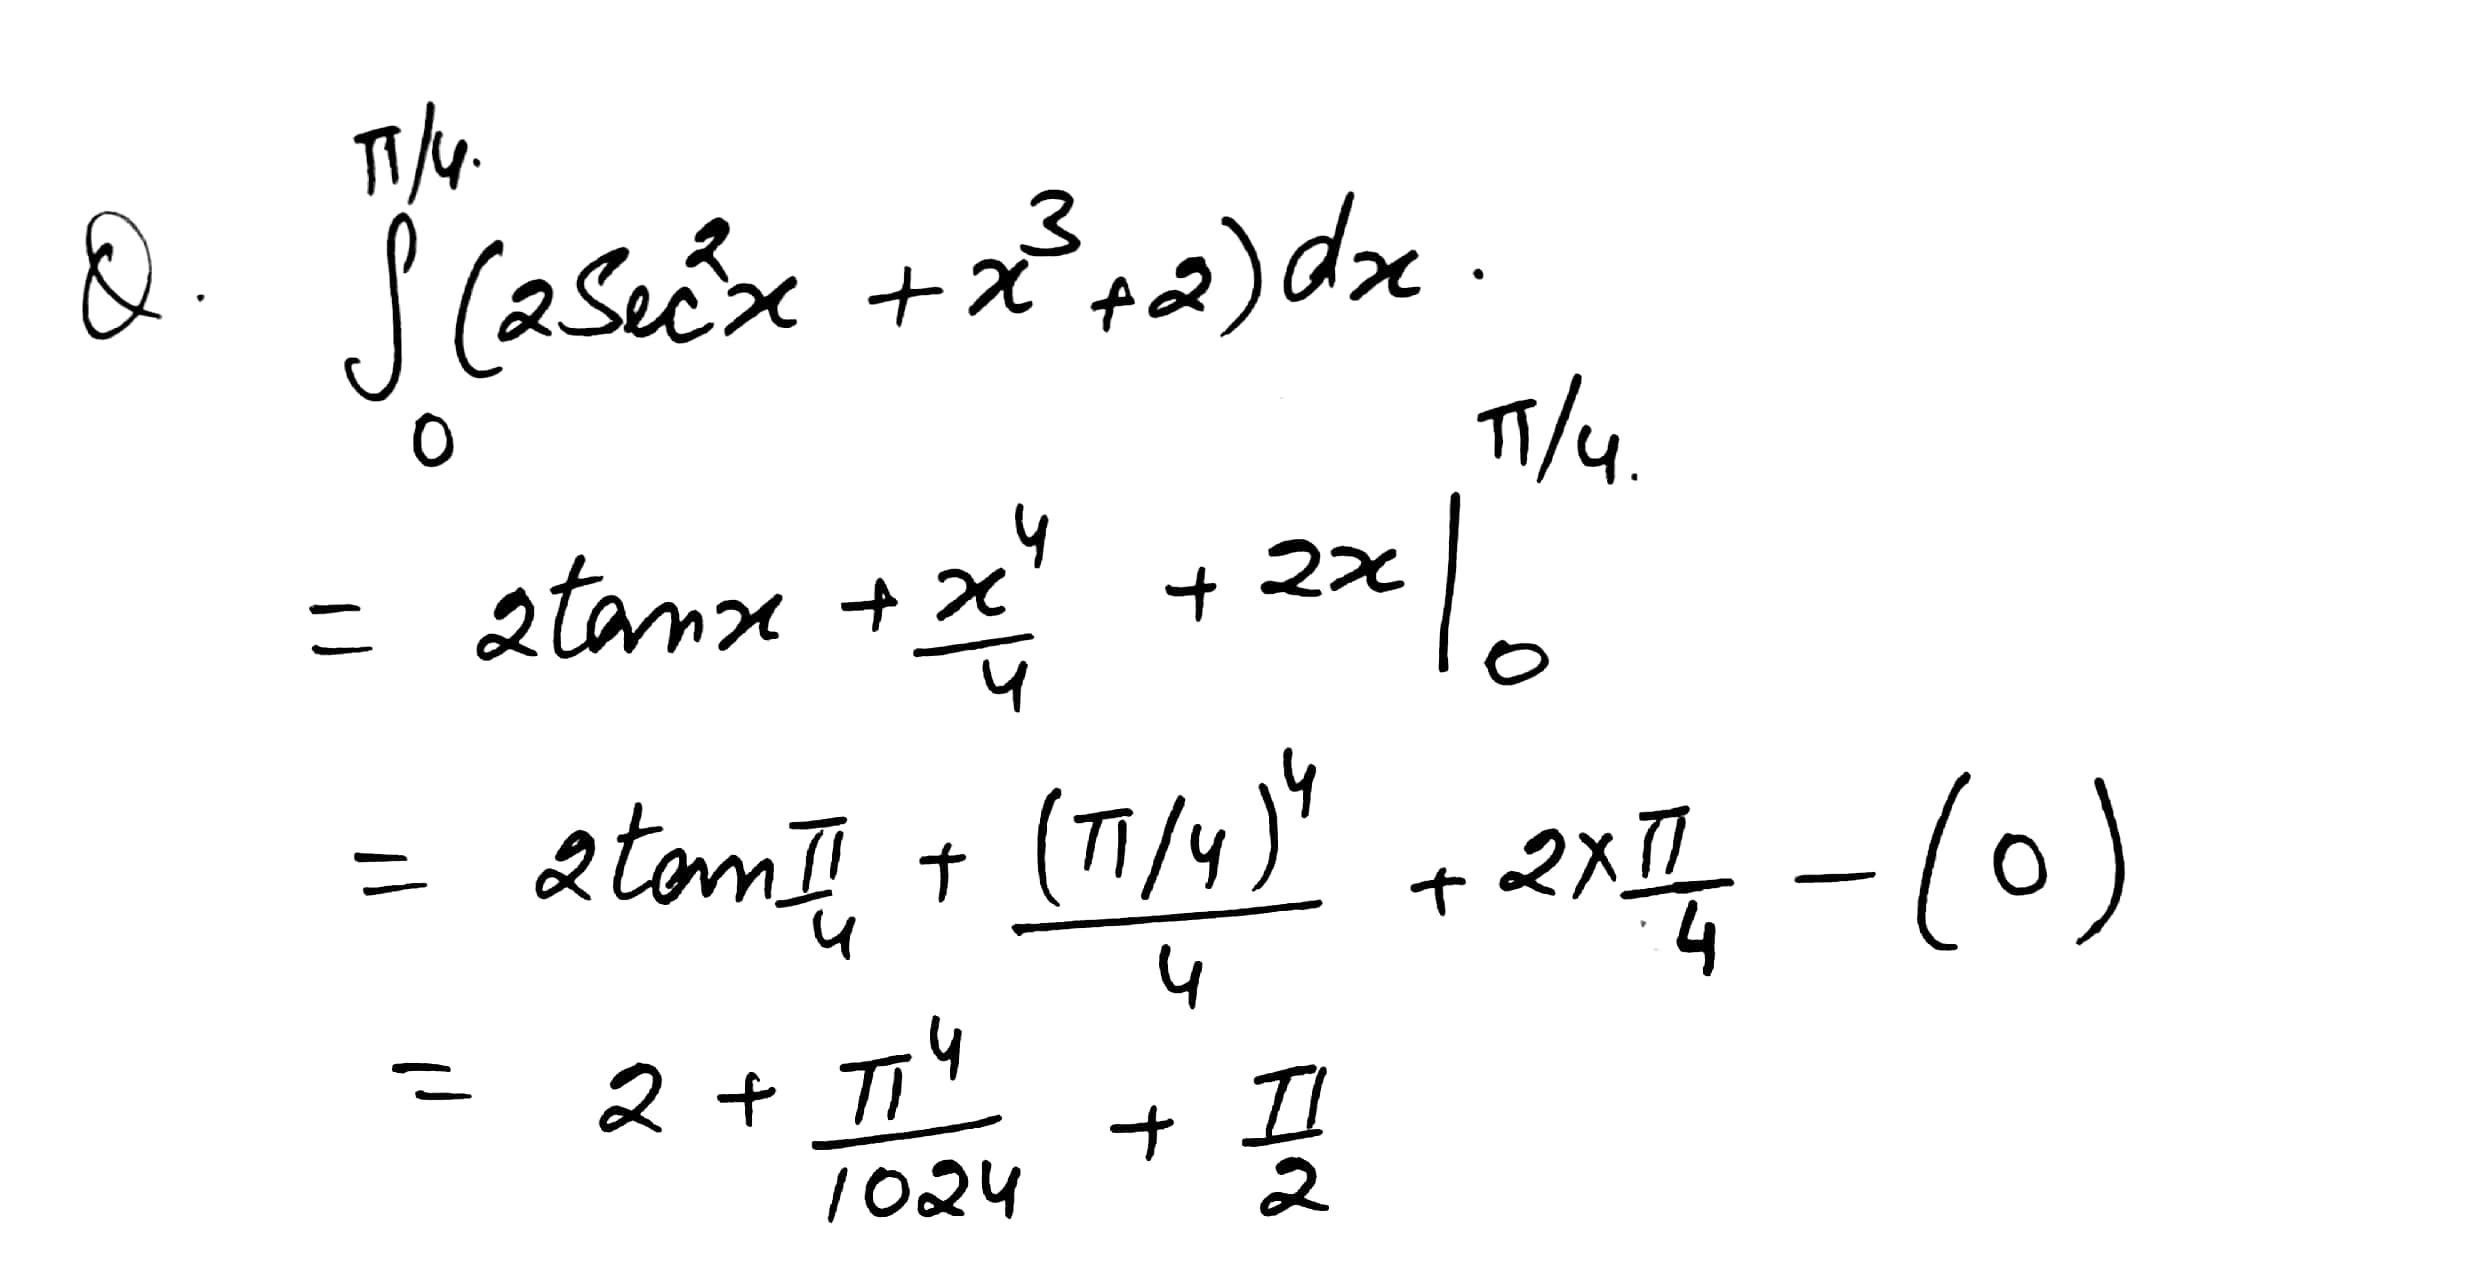 Q. ∫₀^{π/4.} (2Sec²x + x³ + 2) dx .
= 2tanx + x⁴/4 + 2x |₀^{π/4.}
= 2tan π/4 + (π/4)⁴/4 + 2×π/4 − (0)
= 2 + π⁴/1024 + π/2